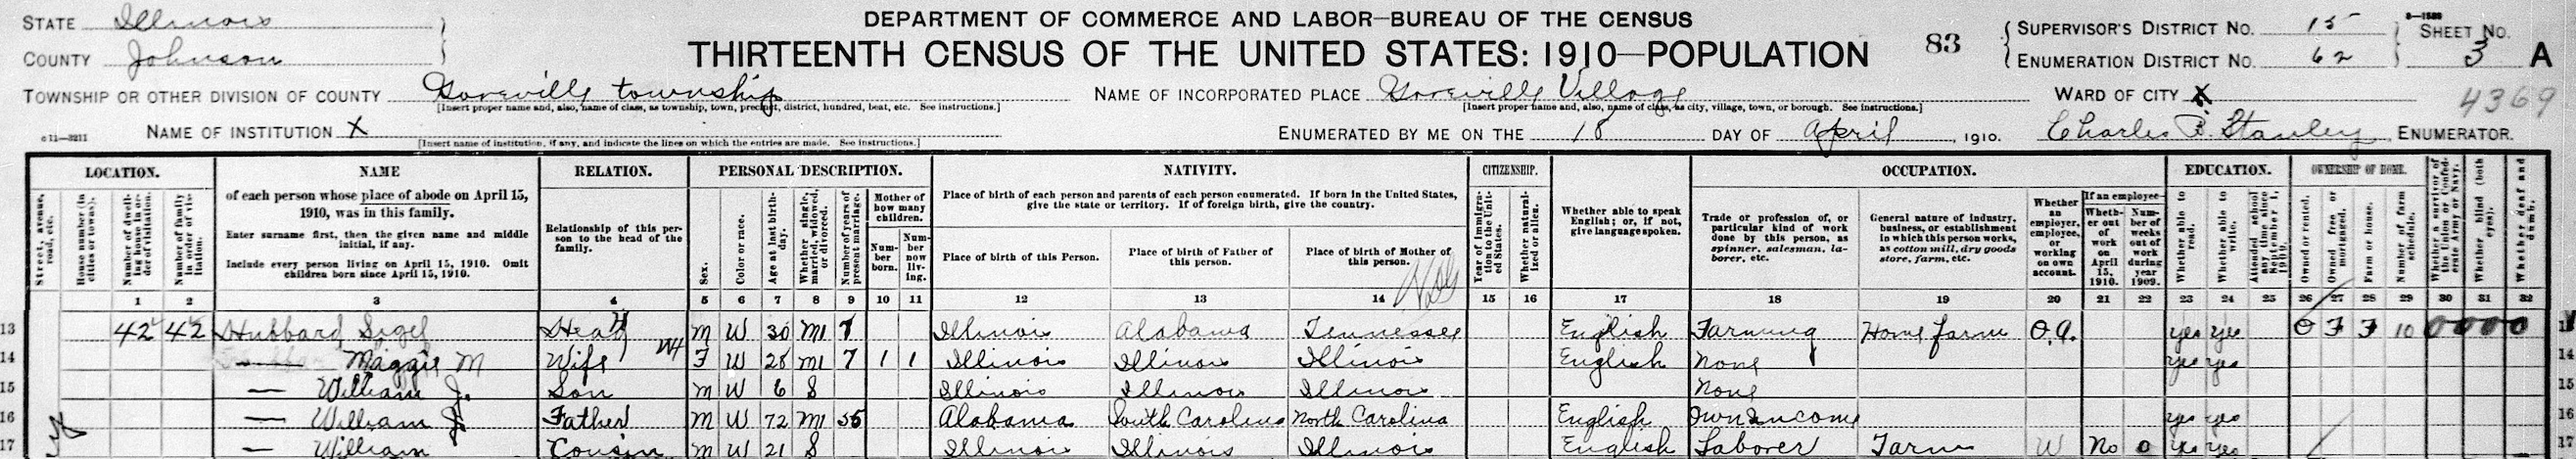 STATE Illinois
DEPARTMENT OF COMMERCE AND LABOR—BUREAU OF THE CENSUS
COUNTY Johnson
THIRTEENTH CENSUS OF THE UNITED STATES: 1910—POPULATION
83
SUPERVISOR'S DISTRICT No. 15
ENUMERATION DISTRICT No. 62
SHEET No. 3 A
TOWNSHIP OR OTHER DIVISION OF COUNTY Goreville township
[Insert proper name and, also, name of class, as township, town, precinct, district, hundred, beat, etc. See instructions.]
NAME OF INCORPORATED PLACE Goreville Village
[Insert proper name and, also, name of class, as city, village, town, or borough. See instructions.]
WARD OF CITY X
4369
NAME OF INSTITUTION X
[Insert name of institution, if any, and indicate the lines on which the entries are made. See instructions.]
ENUMERATED BY ME ON THE 18 DAY OF April, 1910. Charles Stanley, ENUMERATOR.
LOCATION.
Street, avenue, road, etc.
House number (in cities or towns).
Number of dwelling house in order of visitation.
Number of family in order of visitation.
NAME
of each person whose place of abode on April 15, 1910, was in this family.
Enter surname first, then the given name and middle initial, if any.
Include every person living on April 15, 1910. Omit children born since April 15, 1910.
RELATION.
Relationship of this person to the head of the family.
PERSONAL DESCRIPTION.
Sex.
Color or race.
Age at last birthday.
Whether single, married, widowed, or divorced.
Number of years of present marriage.
Mother of how many children.
Number born.
Number now living.
NATIVITY.
Place of birth of each person and parents of each person enumerated. If born in the United States, give the state or territory. If of foreign birth, give the country.
Place of birth of this Person.
Place of birth of Father of this person.
Place of birth of Mother of this person.
CITIZENSHIP.
Year of immigration to the United States.
Whether naturalized or alien.
Whether able to speak English; or, if not, give language spoken.
OCCUPATION.
Trade or profession of, or particular kind of work done by this person, as spinner, salesman, laborer, etc.
General nature of industry, business, or establishment in which this person works, as cotton mill, dry goods store, farm, etc.
Whether an employer, employee, or working on own account.
If an employee—
Whether out of work on April 15, 1910.
Number of weeks out of work during year 1909.
EDUCATION.
Whether able to read.
Whether able to write.
Attended school any time since September 1, 1909.
OWNERSHIP OF HOME.
Owned or rented.
Owned free or mortgaged.
Farm or house.
Number of farm schedule.
Whether a survivor of the Union or Confederate Army or Navy.
Whether blind (both eyes).
Whether deaf and dumb.
1 2 3 4 5 6 7 8 9 10 11 12 13 14 15 16 17 18 19 20 21 22 23 24 25 26 27 28 29 30 31 32
13 42 42 Hubbard Sigel Head M W 30 M1 7 Illinois Alabama Tennessee English Farming Home farm O.A. yes yes O F F 10 0 0 0 0
14 — Maggie M Wife F W 28 M1 7 1 1 Illinois Illinois Illinois English None yes yes 14
15 — William J. Son M W 6 S Illinois Illinois Illinois None 15
16 — William J Father M W 72 M1 Alabama South Carolina North Carolina English Own Income yes yes 16
17 — William Cousin M W 21 S Illinois Illinois Illinois English Laborer Farm W No 0 yes yes 17